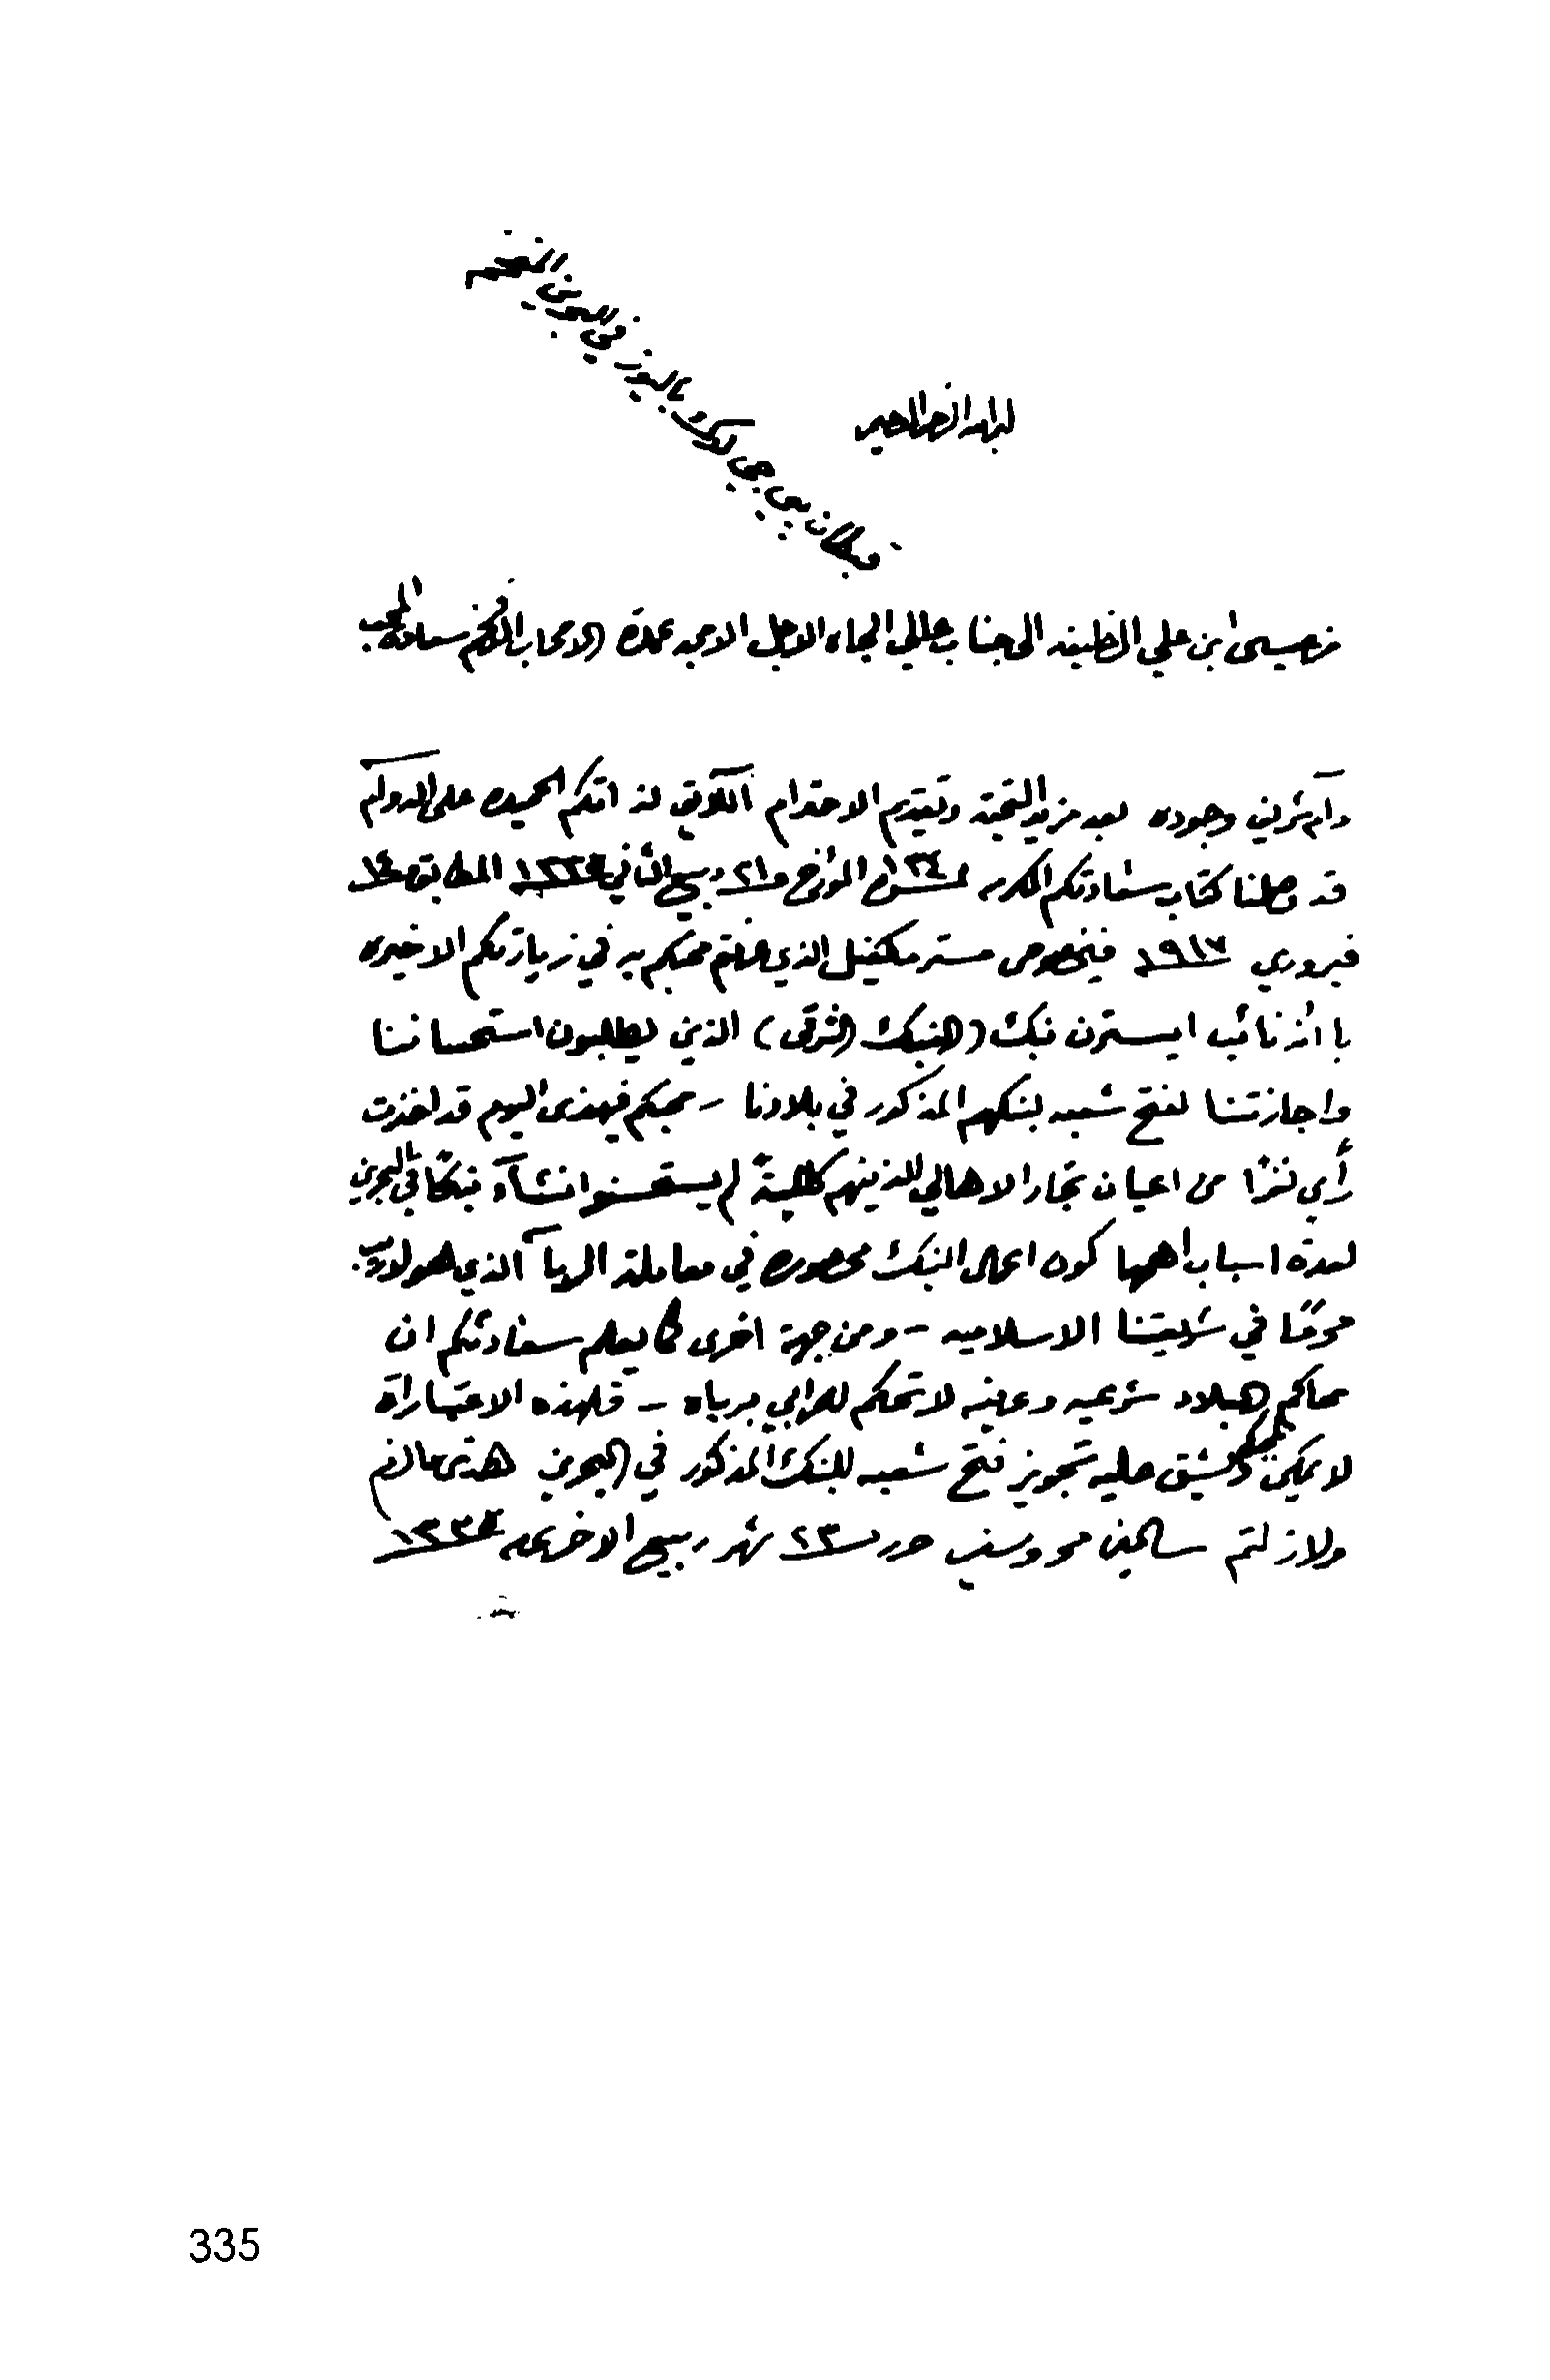 بسم الله الرحمن الرحيم
من عيسى ابن علي الخليفه الى جناب عالي الجاه الاجل الامجد عمدة الاصحاب الافخم سعادة المحب
قبطان بي جي لوك باليوز في البحرين المفخم
دآم شريف وجوده بعد مزيد التحية وتقديم الاحترام اللآيق لذاتكم الحميده على الدوآم
قد وصلنا كتاب سعادتكم المكرم المؤرخ ٢١ ربيع الثاني ١٣٣٥ المطابق ١٤
فبروري ١٩١٧ فيخصوص مستر مكفيل الذي محبكم به في زيارتكم الاخيره
بأنه نائب ايسترن بنك (البنك الشرقى) الذين يطلبون استحساننا
واجازتنا لفتح شعبه لبنكهم المذكور في بلادنا - محبكم فيهذى اليوم قد اخذت
رأي نفرًا من اعيان تجار الاهالي الذينهم كلليةً لم يستحسنوا انشآء بنكًا في البحرين
لعدة اسباب اهمها كون اعمال البنك محصوره في معاملة الربآ الذي هو لاريب
محرمًا في شريعتنا الاسلاميه - ومن جهة اخرى كما يعلم سعادتكم ان
محاكم هبلاد شرعيه دينيه لا تحكم للمرابي برباه - فلهذه الاعتبارات
لا يمكن لمحبكم ويشق عليه تجويز فتح شعبه للبنك المذكور في البحرين هذى مالزم
ولازلتم سالمين محروسين حرر ٢٣ شهر ربيع الاخر ١٣٣٥
335